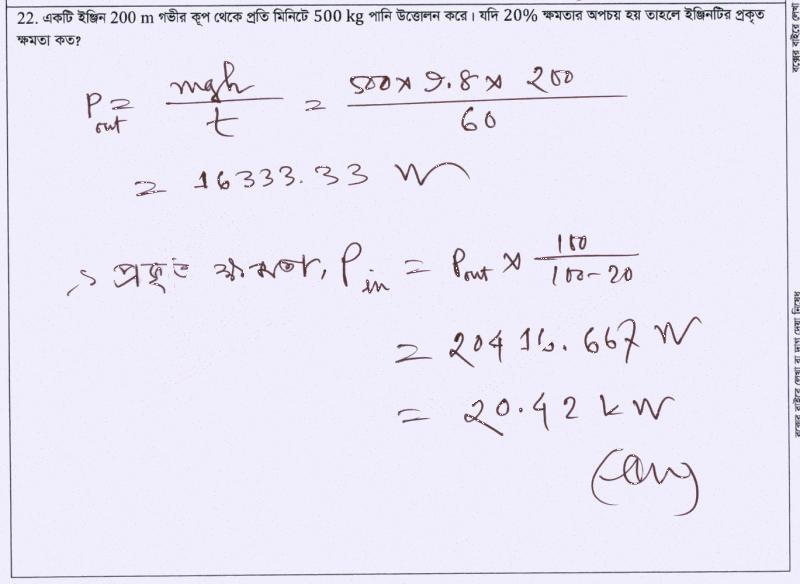 22. একটি ইঞ্জিন 200 m গভীর কূপ থেকে প্রতি মিনিটে 500 kg পানি উত্তোলন করে। যদি 20% ক্ষমতার অপচয় হয় তাহলে ইঞ্জিনটির প্রকৃত
ক্ষমতা কত?
P_out = mgh / t = 500 × 9.8 × 200 / 60
= 16333.33 W
∴ প্রকৃত ক্ষমতা, P_in = P_out × 100 / 100-20
= 20416.667 W
= 20.42 kW
(Ans)